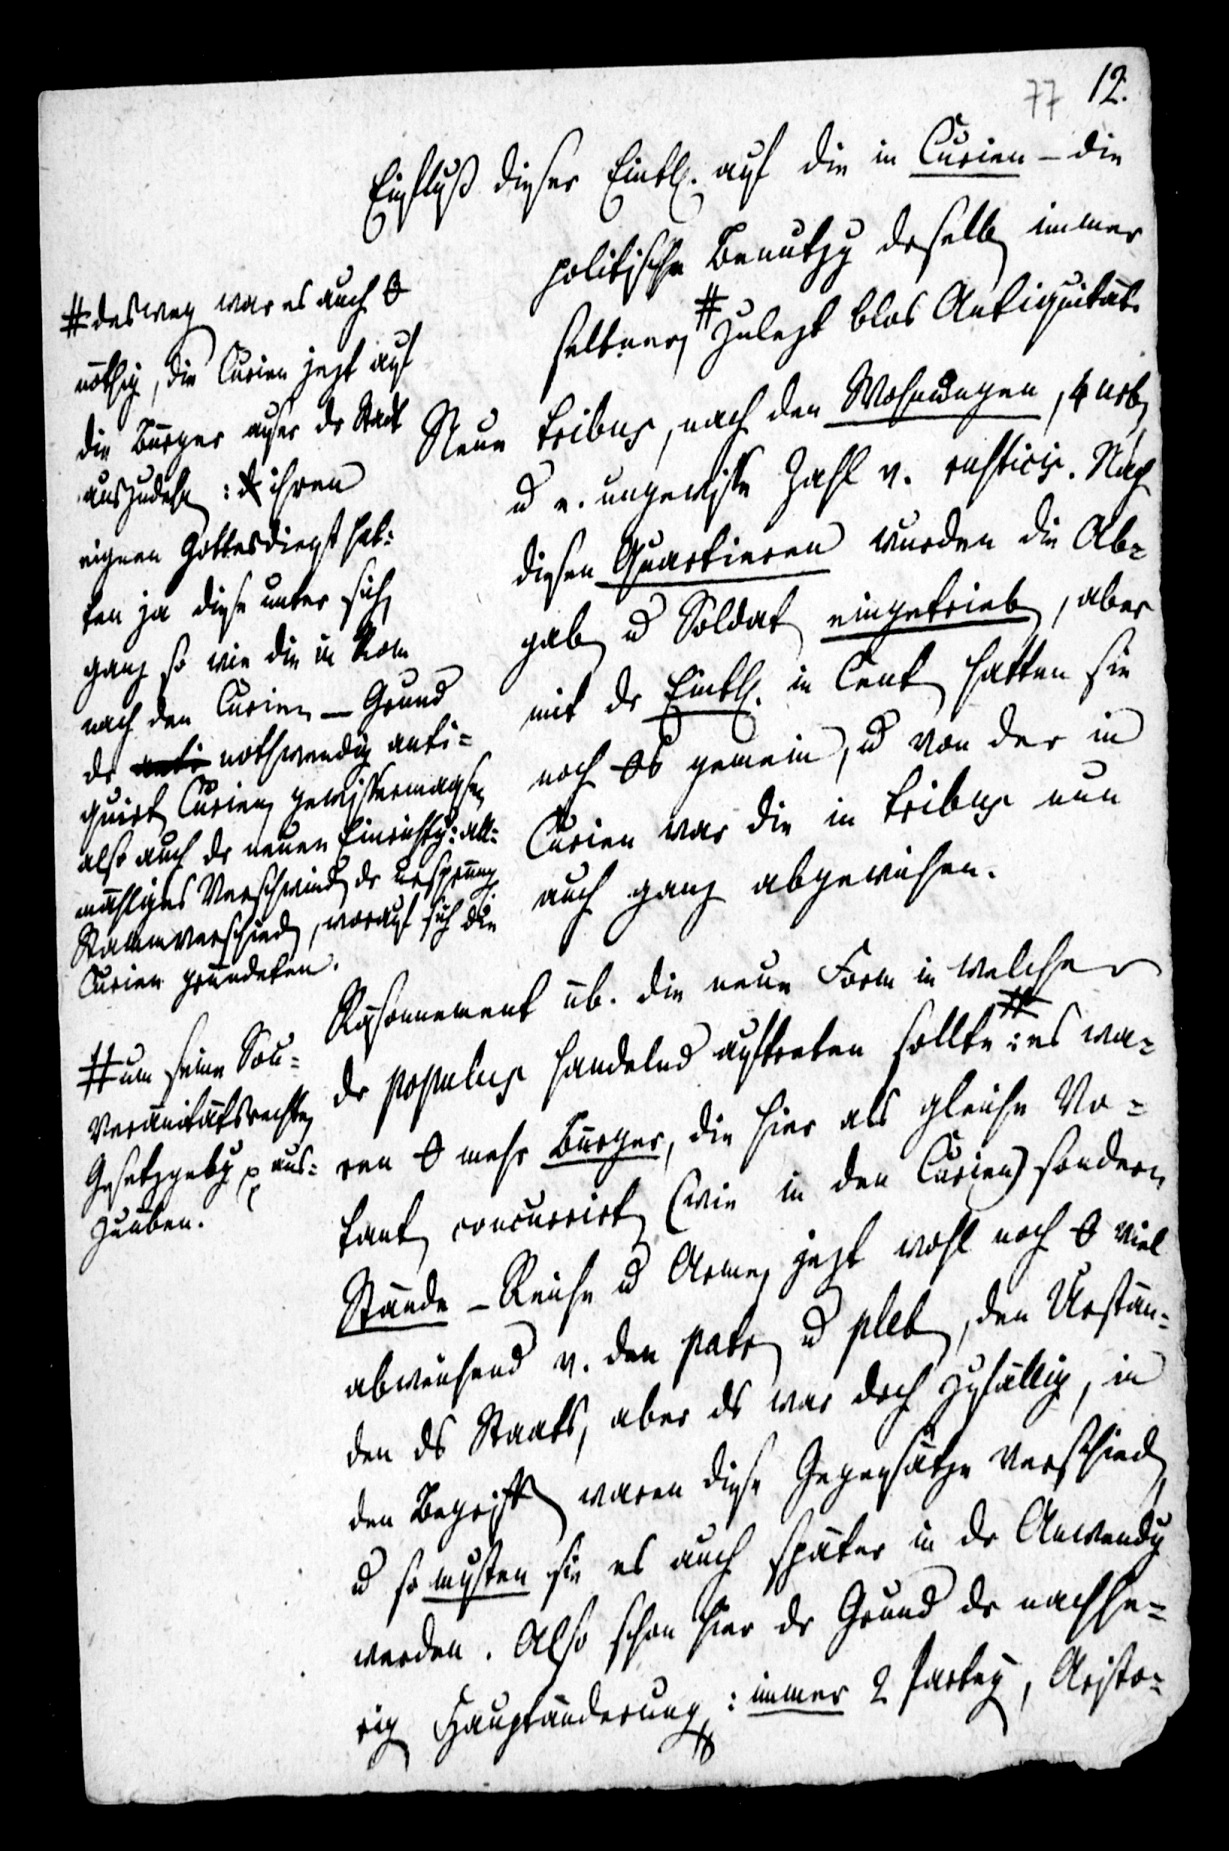 77 12.
Einfluß dieser Einthl. auf die in Curien – die
politische Benutzg derselb immer
seltner, # zulezt blos Antiquität.
Neue tribus, nach den Wohnungen, 4 urb.
u e. ungewisse Zahl v. rusticis. Nach
diesen Quartieren wurden die Ab-
gab u Soldat eingetrieb, aber
mit dr Einthl. in Cent hatten sie
noch gemein, u von der in
Curien war die in tribus nun
auch ganz abgewichen.
Räsonnement üb. die neue Form in welcher
dr populus handelnd auftreten sollte #: es wa-
ren 0 mehr Bürger, die hier als gleiche Vo-
tant concurrirt (wie in den Curien) sondern
Stände – Reiche u Arme, jezt wohl noch 0 viel
abweichend v. den patr u pleb, den Urstän-
den ds Staats, aber ds war doch zufällig, in
den Begriff waren diese Gegensätze verschied,
u so musten sie es auch später in dr Anwendg
werden. Also schon hier dr Grund dr nachhe-
rig Hauptänderung: immer 2 Partey, Aristo-
# deswegen war es auch 0
nöthig, die Curien jezt auf
die Bürger auser dr Stadt
auszudehn: ihren
eignen Gottesdienst hat-
ten ja diese unter sich,
ganz so wie die in Rom
nach den Curien – Grund
dr anti nothwendig anti-
quirt Curien, gewissermasen
also auch dr neuen Einrichtg: all-
mähliges Verschwind dr ursprüng
Stammverschied, worauf sich die
Curien gründeten.
# um seine Sou-
veränitätsrechte,
Gesetzgebg p aus-
zuüben.